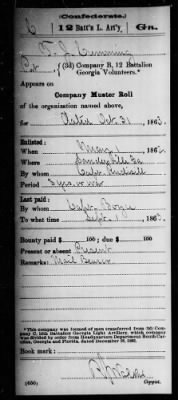 (Confederate.)
6 12 Batt'n L. Art'y, Ga.
T. J. Cumming
Pvt., (3d) Company B, 12 Battalion
Georgia Volunteers.*
Appears on
Company Muster Roll
of the organization named above,
for Oct. 31, 186
Enlisted:
When May 1, 186
Where Sandersville Ga
By whom Capt.
Period 3 yrs. or war
Last paid:
By whom Capt.
To what time Sept. 1, 186
Bounty paid $ 100; due $ 100
Present or absent Present
Remarks: Mail
*This company was formed of men transferred from (3d) Com-
pany C, 12th Battalion Georgia Light Artillery, which company
was divided by order from Headquarters Department South Caro-
lina, Georgia and Florida, dated December
Book mark:
(650)
Copyist.